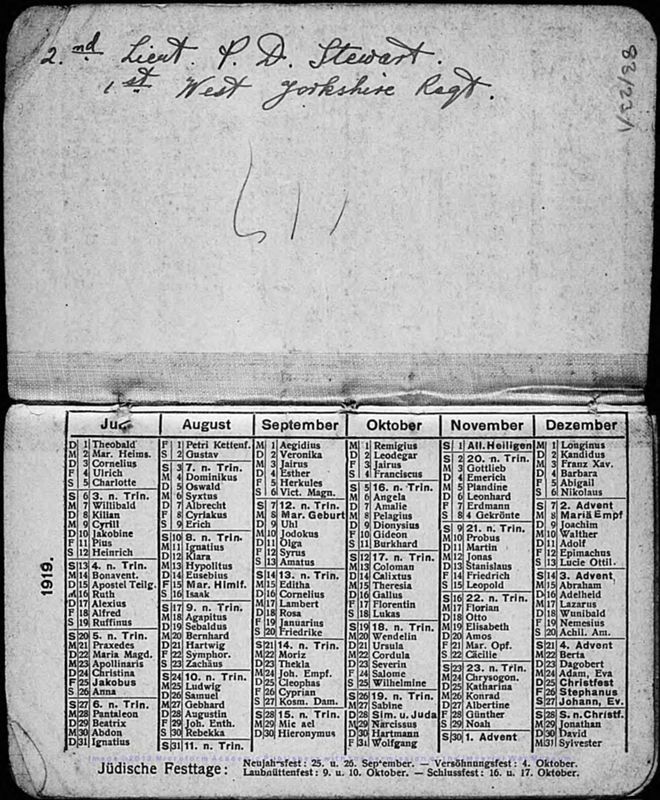 2.nd Lieut. P. D. Stewart.
1st West Yorkshire Regt.
83/23/1
611
1919.
Ju
D 1 Theobald
M 2 Mar. Heims.
D 3 Cornelius
F 4 Ulrich
S 5 Charlotte
S 6 3. n. Trin.
M 7 Willibald
D 8 Kilian
M 9 Cyrill
D 10 Jakobine
F 11 Pius
S 12 Heinrich
S 13 4. n. Trin.
M 14 Bonavent.
D 15 Apostel Teilg.
M 16 Ruth
D 17 Alexius
F 18 Alfred
S 19 Ruffinus
S 20 5. n. Trin.
M 21 Praxedes
D 22 Maria Magd.
M 23 Apollinaris
D 24 Christina
F 25 Jakobus
S 26 Anna
S 27 6. n. Trin.
M 28 Pantaleon
D 29 Beatrix
M 30 Abdon
D 31 Ignatius
August
F 1 Petri Kettenf.
S 2 Gustav
S 3 7. n. Trin.
M 4 Dominikus
D 5 Oswald
M 6 Syxtus
D 7 Albrecht
F 8 Cyriakus
S 9 Erich
S 10 8. n. Trin.
M 11 Ignatius
D 12 Klara
M 13 Hypolitus
D 14 Eusebius
F 15 Mar. Himlf.
S 16 Isaak
S 17 9. n. Trin.
M 18 Agapitus
D 19 Sebaldus
M 20 Bernhard
D 21 Hartwig
F 22 Symphor.
S 23 Zachäus
S 24 10. n. Trin.
M 25 Ludwig
D 26 Samuel
M 27 Gebhard
D 28 Augustin
F 29 Joh. Enth.
S 30 Rebekka
S 31 11. n. Trin.
September
M 1 Aegidius
D 2 Veronika
M 3 Jairus
D 4 Esther
F 5 Herkules
S 6 Vict. Magn.
S 7 12. n. Trin.
M 8 Mar. Geburt
D 9 Uhl
M 10 Jodokus
D 11 Olga
F 12 Syrus
S 13 Amatus
S 14 13. n. Trin.
M 15 Editha
D 16 Cornelius
M 17 Lambert
D 18 Rosa
F 19 Januarius
S 20 Friedrike
S 21 14. n. Trin.
M 22 Moriz
D 23 Thekla
M 24 Joh. Empf.
D 25 Cleophas
F 26 Cyprian
S 27 Kosm. Dam.
S 28 15. n. Trin.
M 29 Mic ael
D 30 Hieronymus
Oktober
M 1 Remigius
D 2 Leodegar
F 3 Jairus
S 4 Franciscus
S 5 16. n. Trin.
M 6 Angela
D 7 Amalie
M 8 Pelagius
D 9 Dionysius
F 10 Gideon
S 11 Burkhard
S 12 17. n. Trin.
M 13 Coloman
D 14 Calixtus
M 15 Theresia
D 16 Gallus
F 17 Florentin
S 18 Lukas
S 19 18. n. Trin.
M 20 Wendelin
D 21 Ursula
M 22 Cordula
D 23 Severin
F 24 Salome
S 25 Wilhelmine
S 26 19. n. Trin.
M 27 Sabine
D 28 Sim. u. Juda
M 29 Narcissus
D 30 Hartmann
F 31 Wolfgang
November
S 1 All. Heiligen
S 2 20. n. Trin.
M 3 Gottlieb
D 4 Emerich
M 5 Plandine
D 6 Leonhard
F 7 Erdmann
S 8 4 Gekrönte
S 9 21. n. Trin.
M 10 Probus
D 11 Martin
M 12 Jonas
D 13 Stanislaus
F 14 Friedrich
S 15 Leopold
S 16 22. n. Trin.
M 17 Florian
D 18 Otto
M 19 Elisabeth
D 20 Amos
F 21 Mar. Opf.
S 22 Cäcilie
S 23 23. n. Trin.
M 24 Chrysogon.
D 25 Katharina
M 26 Konrad
D 27 Albertine
F 28 Günther
S 29 Noah
S 30 1. Advent
Dezember
M 1 Longinus
D 2 Kandidus
M 3 Franz Xav.
D 4 Barbara
F 5 Abigail
S 6 Nikolaus
S 7 2. Advent
M 8 Mariä Empf
D 9 Joachim
M 10 Walther
D 11 Adolf
F 12 Epimachus
S 13 Lucie Ottil.
S 14 3. Advent
M 15 Abraham
D 16 Adelheid
M 17 Lazarus
D 18 Wunibald
F 19 Nemesius
S 20 Achil. Am.
S 21 4. Advent
M 22 Berta
D 23 Dagobert
M 24 Adam, Eva
D 25 Christfest
F 26 Stephanus
S 27 Johann, Ev.
S 28 S. n. Christf.
M 29 Jonathan
D 30 David
M 31 Sylvester
Jüdische Festtage: Neujahsfest: 25. u. 26. September. — Versöhnungsfest: 4. Oktober.
Laubnüttenfest: 9. u. 10. Oktober. — Schlussfest: 16. u. 17. Oktober.